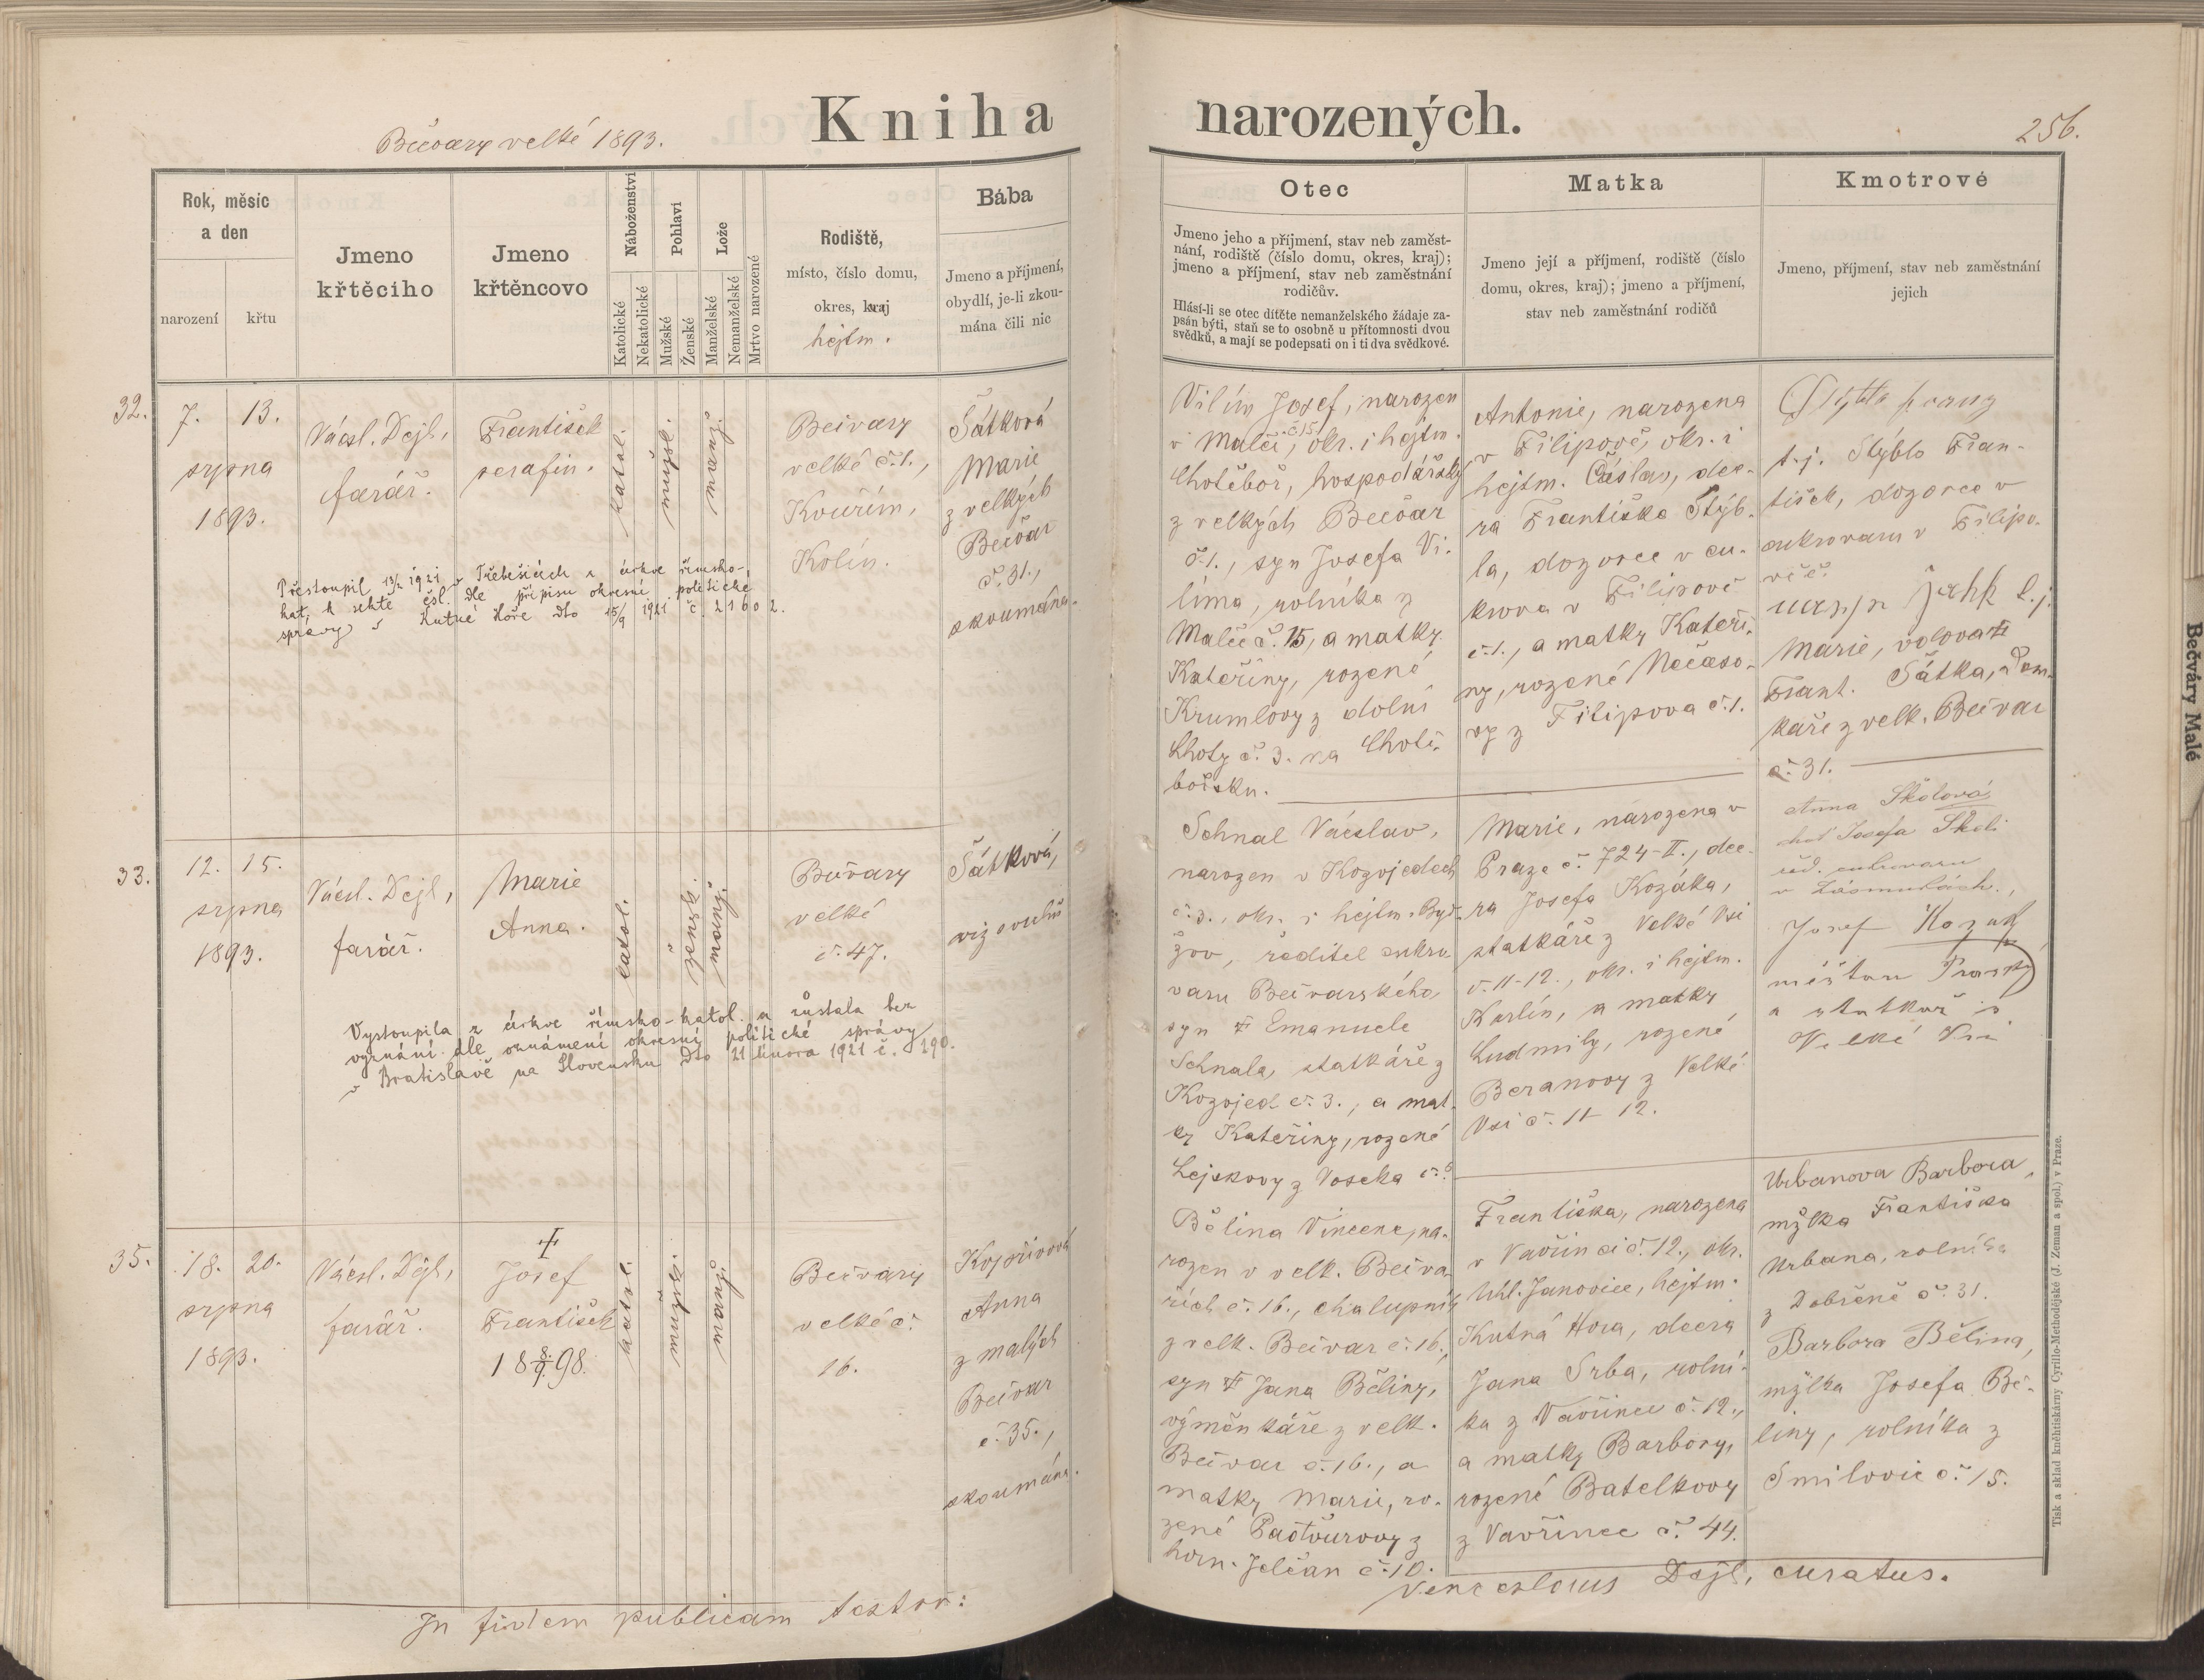 Kniha narozených.
Bečvary velké 1893.
256.
Rok, měsíc
a den
narození
křtu
Jmeno
křtěcího
Jmeno
křtěncovo
Náboženství
Katolické
Nekatolické
Pohlaví
Mužské
Ženské
Lože
Manželské
Nemanželské
Mrtvo narozené
Rodiště,
místo, číslo domu,
okres, kraj
hejtm.
Bába
Jmeno a příjmení,
obydlí, je-li zkou-
mána čili nic
Otec
Jmeno jeho a příjmení, stav neb zaměst-
nání, rodiště (číslo domu, okres, kraj);
jmeno a příjmení, stav neb zaměstnání
rodičův.
Hlásí-li se otec dítěte nemanželského žádaje za-
psán býti, staň se to osobně u přítomnosti dvou
svědků, a mají se podepsati on i ti dva svědkové.
Matka
Jmeno její a příjmení, rodiště (číslo
domu, okres, kraj); jmeno a příjmení,
stav neb zaměstnání rodičů
Kmotrové
Jmeno, příjmení, stav neb zaměstnání
jejich
32.
7. 13.
srpna
1893.
Václ. Dejl,
farář.
František
serafin.
katol.
mužsk.
manž.
Bečvary
velké č. 1.,
Kouřim,
Kolín.
Šátková
Marie
z velkých
Bečvar
č. 31.,
zkoumána.
Přestoupil 13/2 1921 v Třebešicích z církve římsko-
kat. k sektě čsl. dle přípisu okresní politické
správy v Kutné Hoře dto 15/9 1921 č. 21602.
Vilím Josef, narozen
v Malči, č 15 okr. i hejtm.
Chotěboř, hospodářský
z velkých Bečvar
č. 1., syn Josefa Vi-
líma, rolníka z
Malče č. 15, a matky
Kateřiny, rozené
Krumlovy z dolní
Lhoty č. 3. na Chotě-
bořsku.
Antonie, narozena
v Filipově, okr. i
hejtm. Čáslav, dce-
ra Františka Stýb-
la, dozorce v cu-
krova v Filipově
č. 1., a matky Kateři-
ny, rozené Nečaso-
vy z Filipova č. 1.
t. j. Stýblo Fran-
tišek, dozorce v
cukrovaru v Filipo-
vě č.
t. j.
Marie, vdova
Frant. Šátka, dom-
káře z velk. Bečvar
č. 31.
33.
12. 15.
srpna
1893.
Václ. Dejl,
farář.
Marie
Anna.
katol.
žensk.
manž.
Bečvary
velké
č. 47.
Šátková,
viz svrchu
Vystoupila z církve římsko-katol. a zůstala bez
vyznání dle oznámení okresní politické správy
v Bratislavě na Slovensku dto 21 února 1921 č. 290.
Schnal Václav,
narozen v Kozojedech
č. 3., okr. i hejtm. Byd-
žov, ředitel cukro-
varu Bečvarského,
syn † Emanuele
Schnala, statkáře z
Kozojed č. 3., a mat-
ky Kateřiny, rozené
Lejskovy z Voseka č.
Marie, narozena v
Praze č. 724-II., dce-
ra Josefa Kozáka,
statkáře z Velké Vsi
č. 11-12., okr. i hejtm.
Karlín, a matky
Ludmily, rozené
Beranovy z Velké
Vsi č. 11-12.
Anna Školová,
choť Josefa Školi
úř. cukrovaru
v Zásmukách.,
Josef Kozák
měšťan Pražský
a statkář v
Velké Vsi
35.
18. 20.
srpna
1893.
Václ. Dejl,
farář.
†
Josef
František
18 8/7. 98.
katol.
mužsk.
manž.
Bečvary
velké č.
16.
Kopřivová
Anna
z malých
Bečvar
č. 35.,
zkoumána.
Bělina Vincenc, na-
rozen v velk. Bečva-
rích č. 16., chalupník
z velk. Bečvar č. 16.,
syn † Jana Běliny,
výměnkáře z velk.
Bečvar č. 16., a
matky Marie, ro-
zené Pačtůrovy z
horn. Jelčan č. 10.
Františka, narozena
v Vavřinci č. 12., okr.
Uhl. Janovice, hejtm.
Kutná Hora, dcera
Jana Srba, rolní-
ka z Vavřince č. 12.,
a matky Barbory,
rozené Batelkovy
z Vavřince č. 44.
Urbanova Barbora,
mžlka Františka
Urbana, rolníka
z Dobřeně č. 31.
Barbora Bělina,
mžlka Josefa Bě-
liny, rolníka z
Smilovic č. 15.
In fidem publicam testor:
Venceslaus Dejl, curatus.
Bečváry Malé
Tisk a sklad kněhtiskárny Cyrillo-Methodějské (J. Zeman a spol.) v Praze.